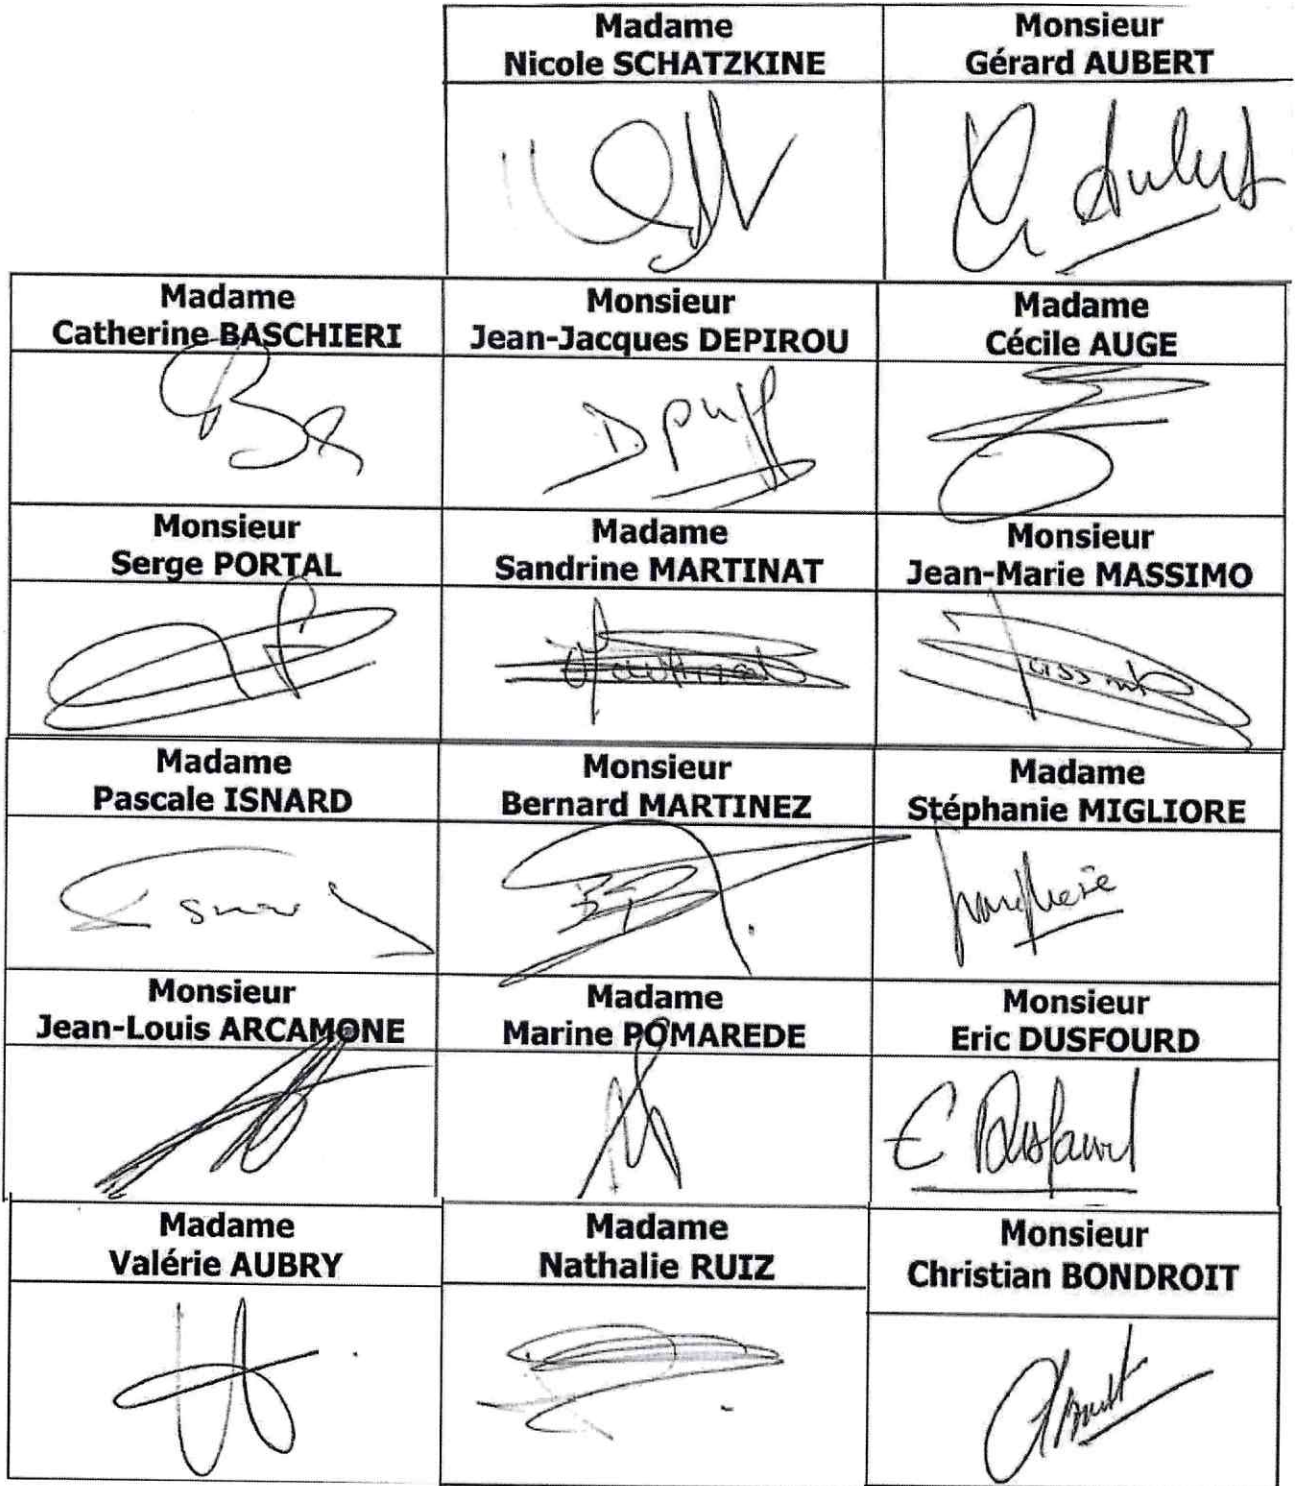 Madame
Nicole SCHATZKINE
Monsieur
Gérard AUBERT
G Aubert
Madame
Catherine BASCHIERI
Monsieur
Jean-Jacques DEPIROU
Madame
Cécile AUGE
Monsieur
Serge PORTAL
Madame
Sandrine MARTINAT
Monsieur
Jean-Marie MASSIMO
Madame
Pascale ISNARD
Monsieur
Bernard MARTINEZ
Madame
Stéphanie MIGLIORE
Monsieur
Jean-Louis ARCAMONE
Madame
Marine POMAREDE
Monsieur
Eric DUSFOURD
E Dusfourd
Madame
Valérie AUBRY
Madame
Nathalie RUIZ
Monsieur
Christian BONDROIT